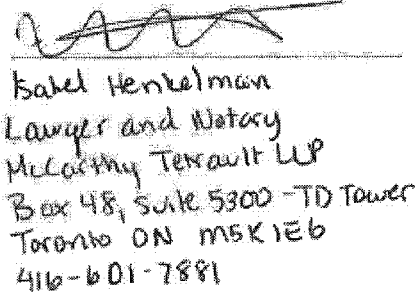 Isabel Henkelman
Lawyer and Notary
McCarthy Tetrault LLP
Box 48, Suite 5300 - TD Tower
Toronto ON M5K 1E6
416-601-7881